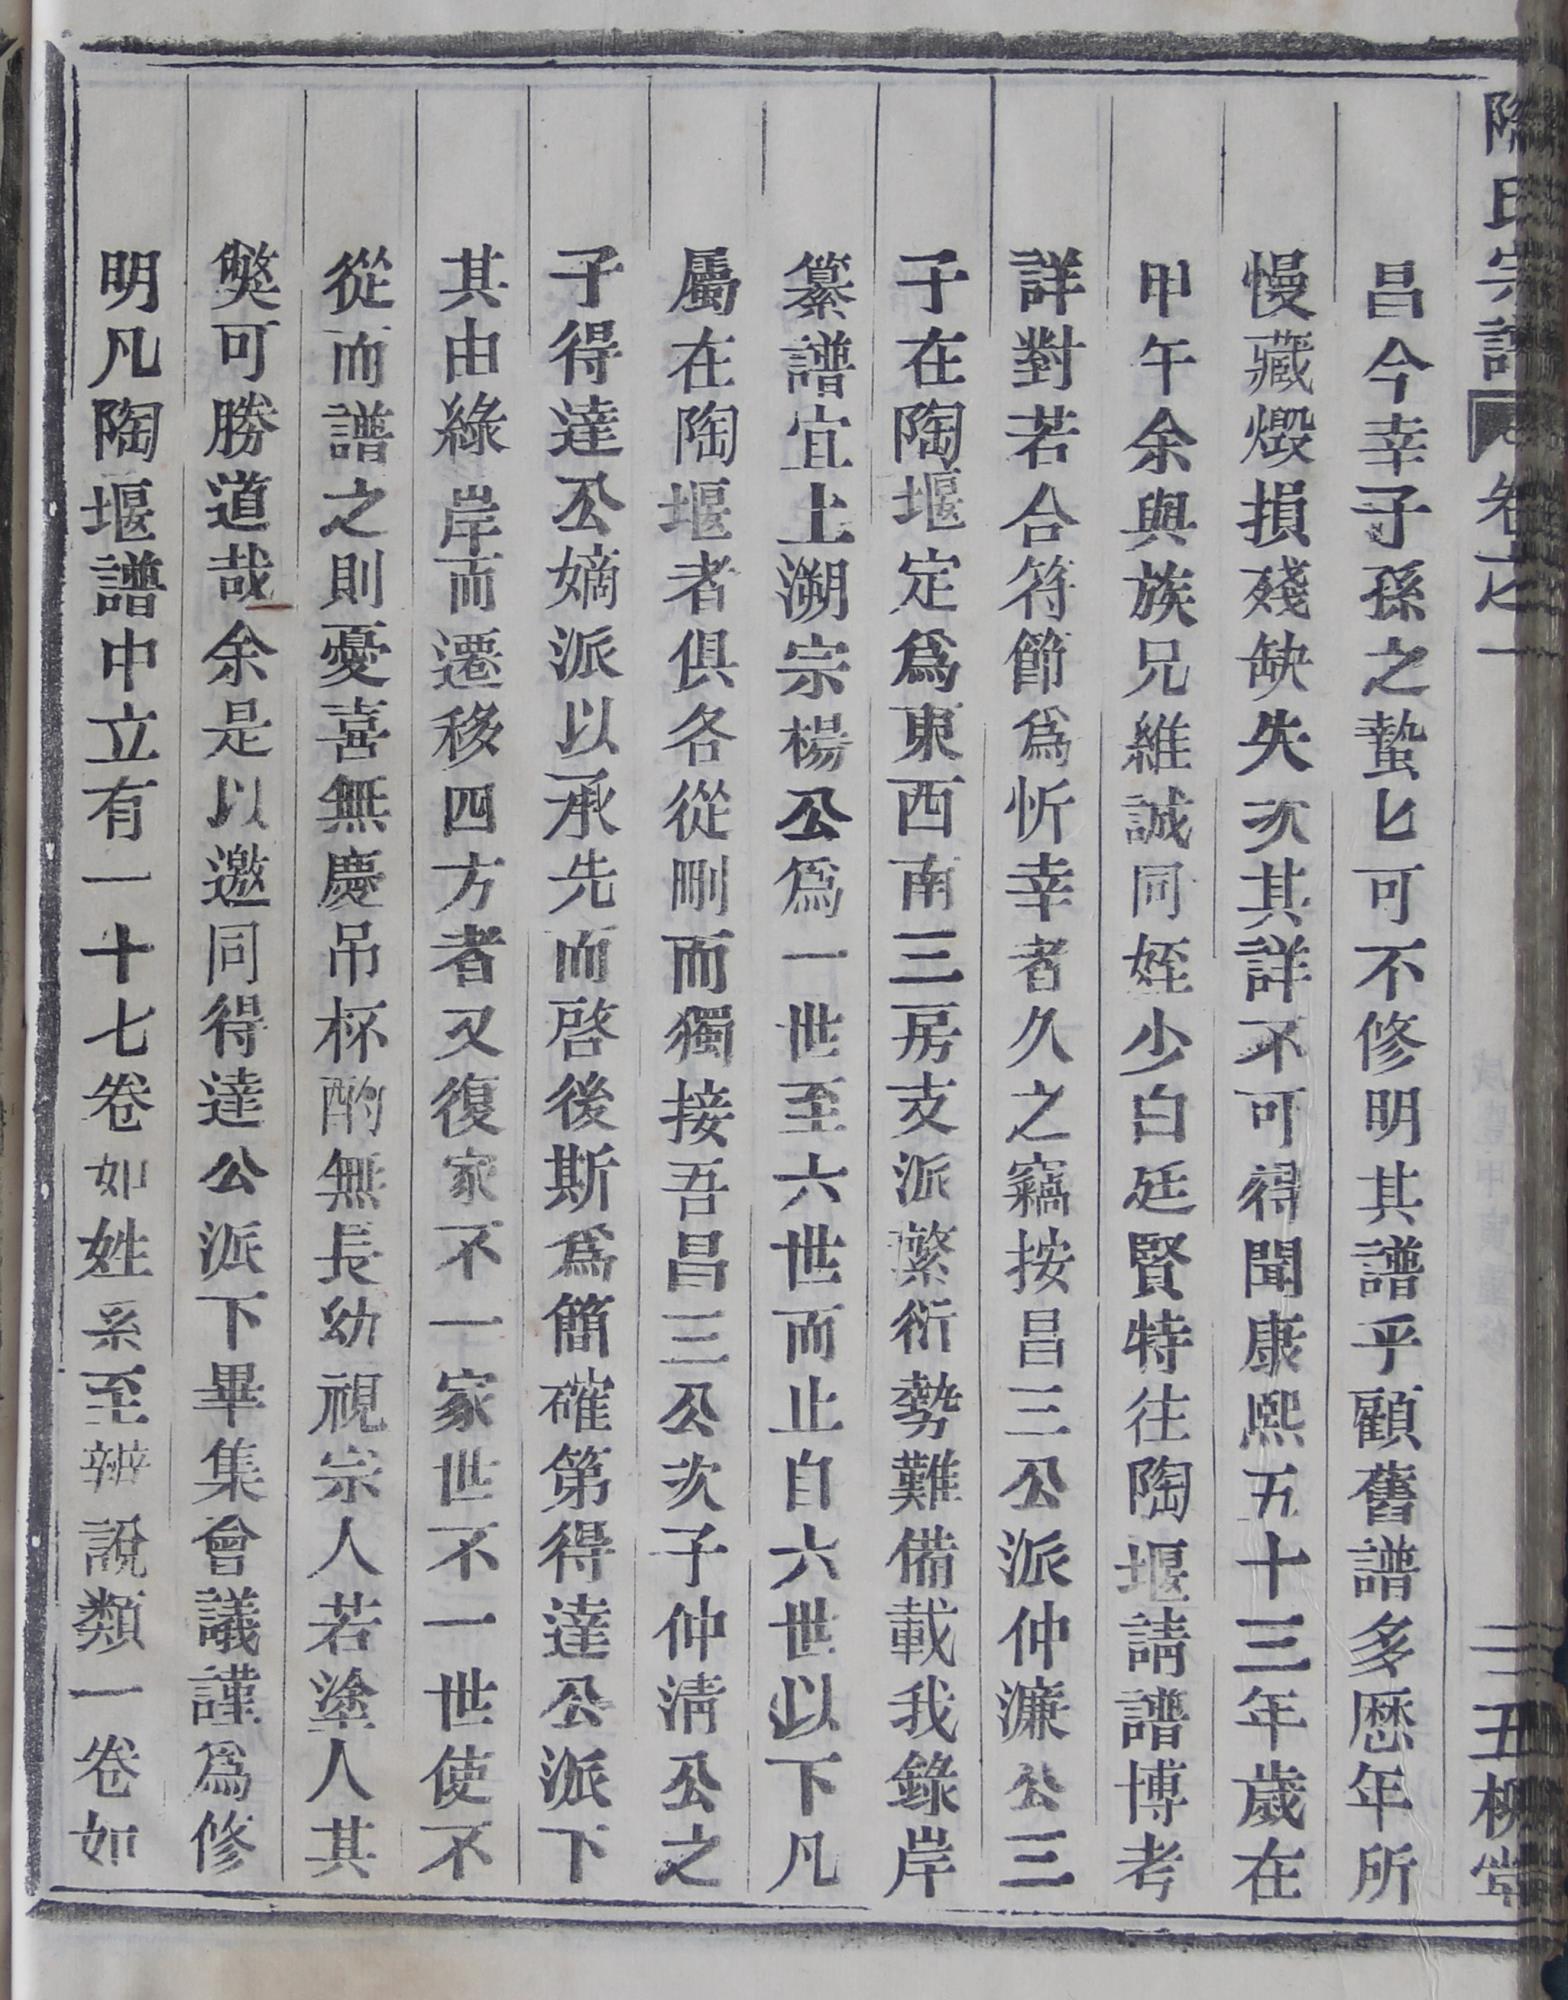 陶氏宗譜 卷之一 二 五柳堂
昌今幸子孫之蟄匕可不修明其譜乎顧舊譜多歷年所
慢藏燬損殘缺失次其詳不可得聞康熙五十三年歲在
甲午余與族兄維誠同姪少白廷賢特往陶堰請譜博考
詳對若合符節爲忻幸者久之竊按昌三公派仲濂公三
子在陶堰定爲東西南三房支派蘩衍勢難備載我錄岸
纂譜宜上溯宗楊公爲一世至六世而止自六世以下凡
屬在陶堰者俱各從刪而獨接吾昌三公次子仲淸公之
子得達公嫡派以承先而啓後斯爲簡確第得達公派下
其由綠岸而遷移四方者又復家不一家世不一世使不
從而譜之則憂喜無慶吊杯酌無長幼視宗人若塗人其
獘可勝道哉余是以邀同得達公派下畢集會議謹爲修
明凡陶堰譜中立有一十七卷如姓系至辨說類一卷如